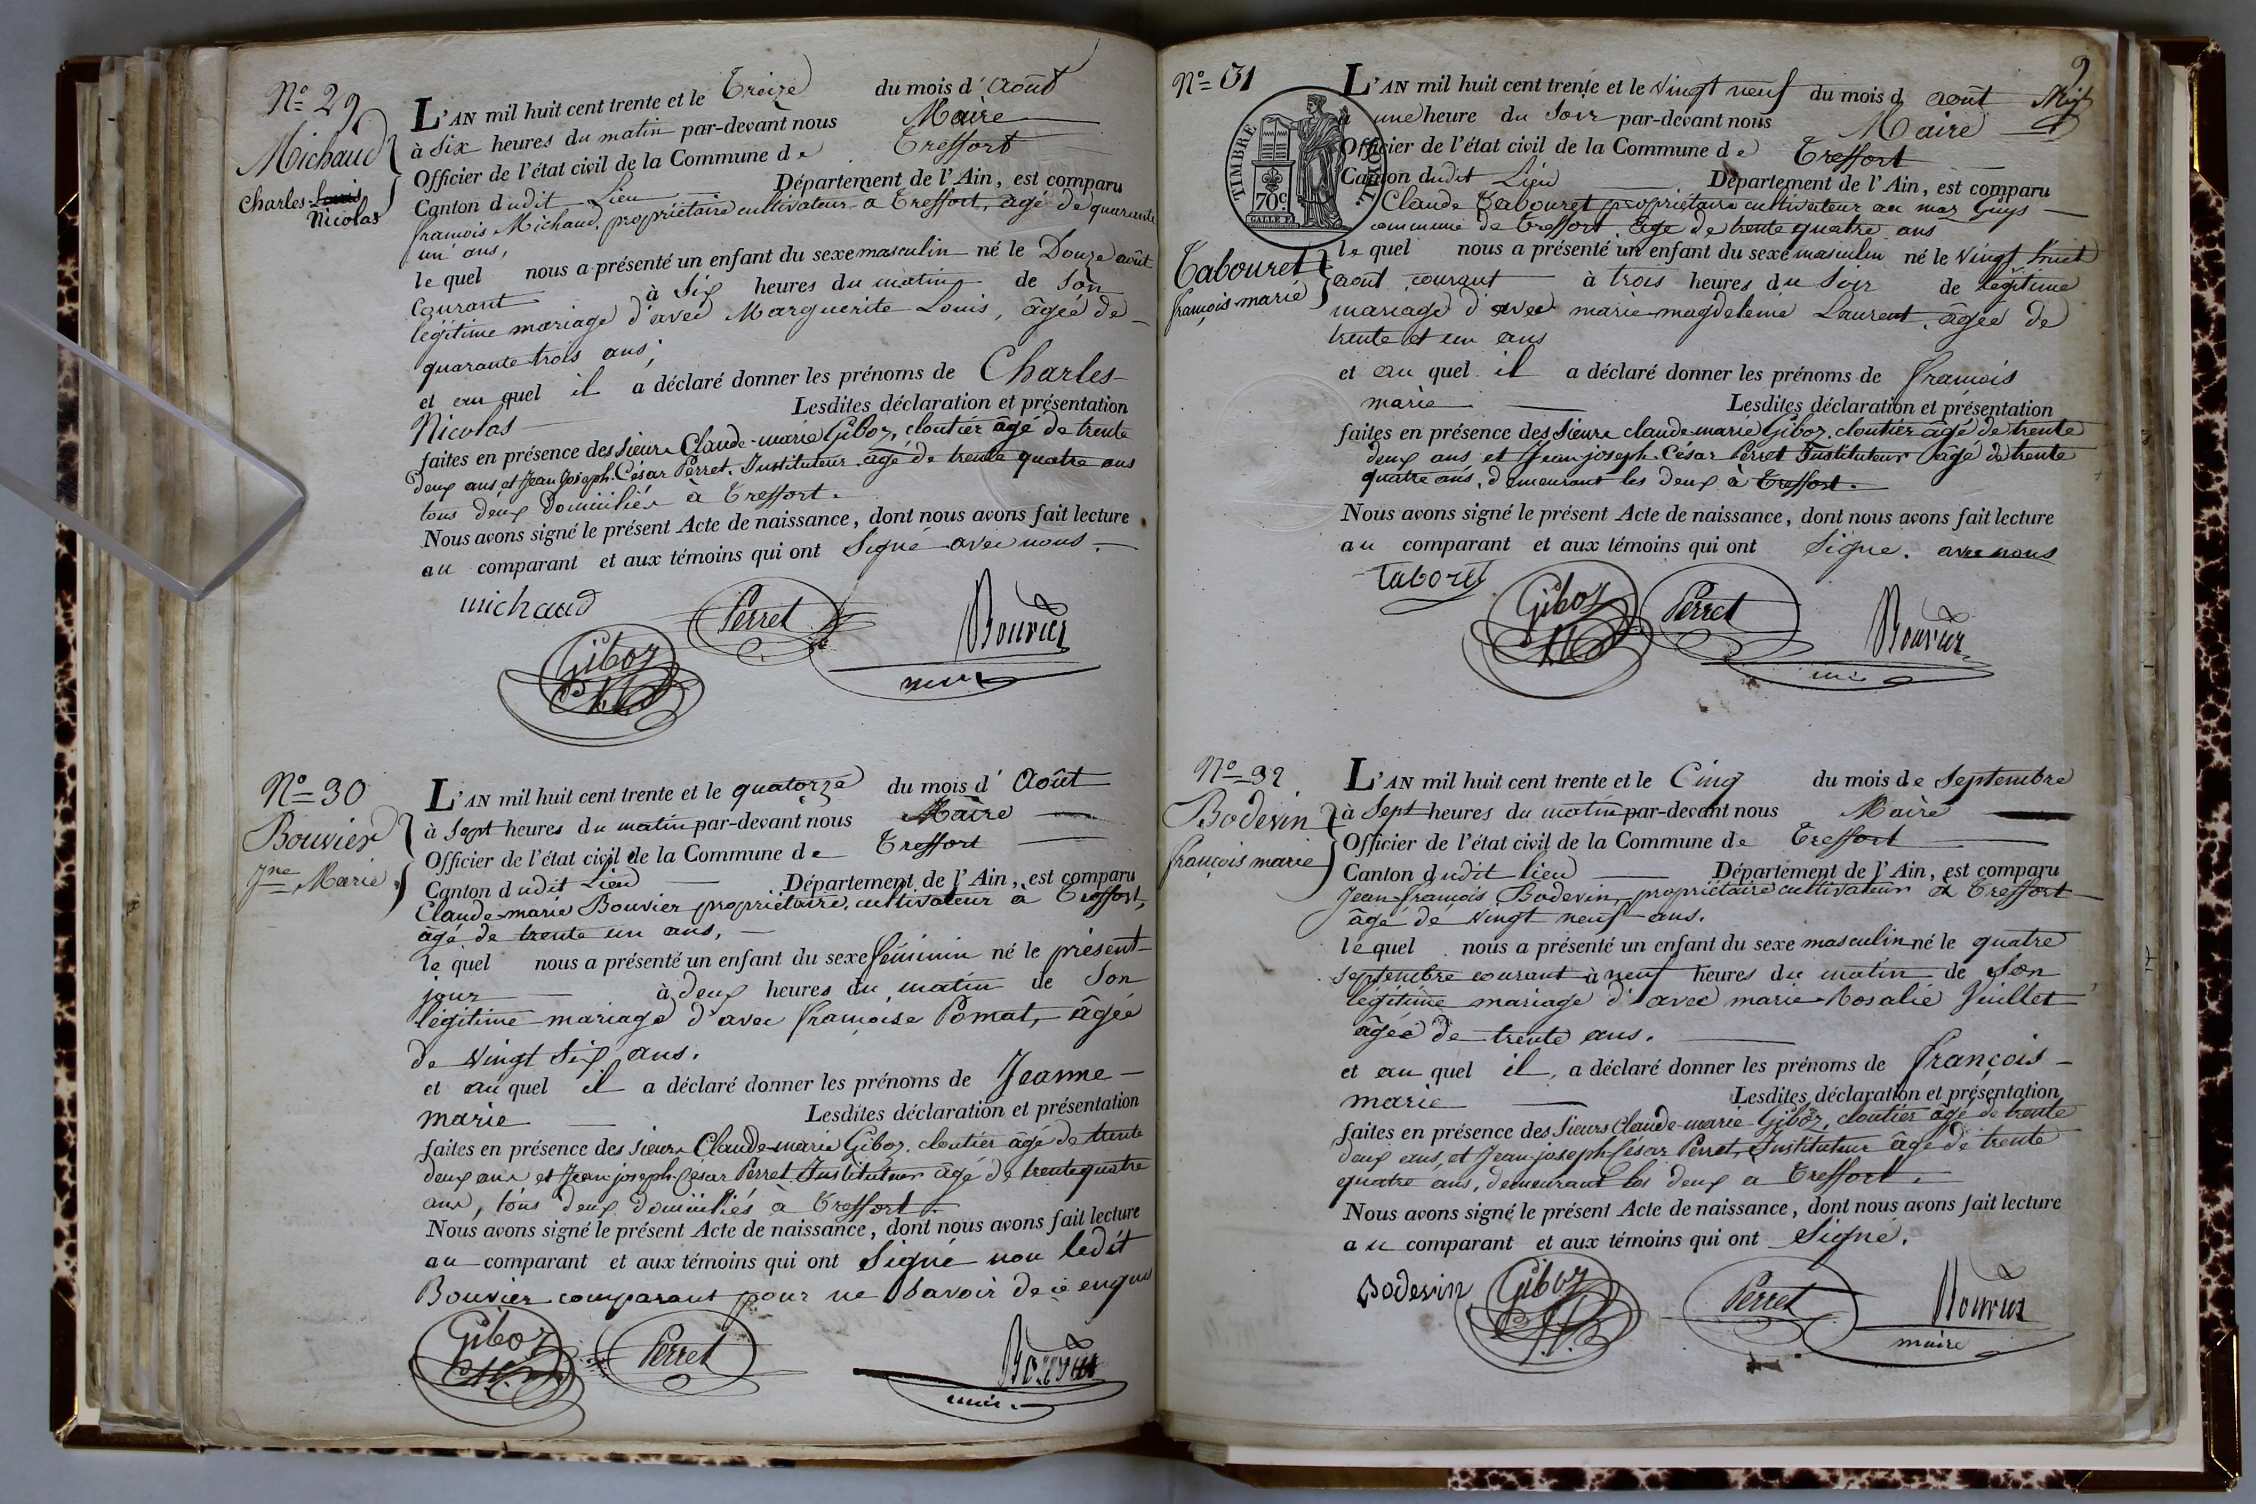 No 29
Michaud
Charles Louis
Nicolas
L'AN mil huit cent trente et le Treize du mois d'Août
à Six heures du matin par-devant nous Maire
Officier de l'état civil de la Commune de Treffort
Canton dudit Lieu Département de l'Ain, est comparu
françois Michaud, propriétaire cultivateur à Treffort, âgé de quarante
un ans,
lequel nous a présenté un enfant du sexe masculin né le Douze août
Courant à Six heures du matin de Son
légitime mariage d'avec Marguerite Louis, âgée de
quarante trois ans;
et au quel il a déclaré donner les prénoms de Charles
Nicolas Lesdites déclaration et présentation
faites en présence des Sieurs Claude-marie Giboz, cloutier âgé de trente
deux ans et Jean Joseph César Perret, Instituteur âgé de trente quatre ans
tous deux Domiciliés à Treffort.
Nous avons signé le présent Acte de naissance, dont nous avons fait lecture
au comparant et aux témoins qui ont Signé avec nous.
michaud Perret Bouvier
Giboz
No 30
Bouvier
Jne Marie
L'AN mil huit cent trente et le quatorze du mois d'Août
à Sept heures du matin par-devant nous Maire
Officier de l'état civil de la Commune de Treffort
Canton dudit Lieu Département de l'Ain, est comparu
Claude-marie Bouvier propriétaire, cultivateur à Treffort,
âgé de trente un ans,
lequel nous a présenté un enfant du sexe féminin né le présent
jour à deux heures du matin de Son
légitime mariage d'avec françoise Pomat, âgée
de Vingt Six ans.
et au quel il a déclaré donner les prénoms de Jeanne
marie Lesdites déclaration et présentation
faites en présence des Sieurs Claude-marie Giboz, cloutier âgé de trente
deux ans et Jean joseph Cesar Perret Instituteur âgé de trente quatre
ans, tous deux domiciliés à Treffort.
Nous avons signé le présent Acte de naissance, dont nous avons fait lecture
au comparant et aux témoins qui ont Signé non ledit
Bouvier comparant pour ne Savoir de ce enquis
Giboz Perret Bouvier
No 31
9
TIMBRE ROYAL
70c
Tabouret
françois marie
L'AN mil huit cent trente et le Vingt neuf du mois d août
à une heure du Soir par-devant nous Maire
Officier de l'état civil de la Commune de Treffort
Canton dudit Lieu Département de l'Ain, est comparu
Claude Tabouret propriétaire cultivateur au maz Guys
commune de Treffort âgé de trente quatre ans
lequel nous a présenté un enfant du sexe masculin né le Vingt huit
août courant à trois heures du Soir de légitime
mariage d'avec marie magdeleine Laurent, âgée de
trente et un ans
et au quel il a déclaré donner les prénoms de françois
marie Lesdites déclaration et présentation
faites en présence des Sieurs claude marie Giboz, cloutier âgé de trente
deux ans et Jean joseph César Perret Instituteur âgé de trente
quatre ans, demeurant les deux à Treffort.
Nous avons signé le présent Acte de naissance, dont nous avons fait lecture
au comparant et aux témoins qui ont Signé. avec nous
Giboz Perret Bouvier
No 32
Bodevin
françois marie
L'AN mil huit cent trente et le Cinq du mois de Septembre
à Sept heures du matin par-devant nous Maire
Officier de l'état civil de la Commune de Treffort
Canton dudit lieu Département de l'Ain, est comparu
Jean-françois Bodevin, propriétaire cultivateur à Treffort
âgé de Vingt neuf ans.
lequel nous a présenté un enfant du sexe masculin né le quatre
Septembre courant à neuf heures du matin de Son
légitime mariage d'avec marie Rosalie Juillet
âgée de trente ans.
et au quel il a déclaré donner les prénoms de françois
marie Lesdites déclaration et présentation
faites en présence des Sieurs Claude-marie Giboz, cloutier âgé de trente
deux ans, et Jean joseph César Perret, Instituteur âgé de trente
quatre ans, demeurant les deux à Treffort.
Nous avons signé le présent Acte de naissance, dont nous avons fait lecture
au comparant et aux témoins qui ont Signé.
Bodevin Giboz Perret Bouvier
maire